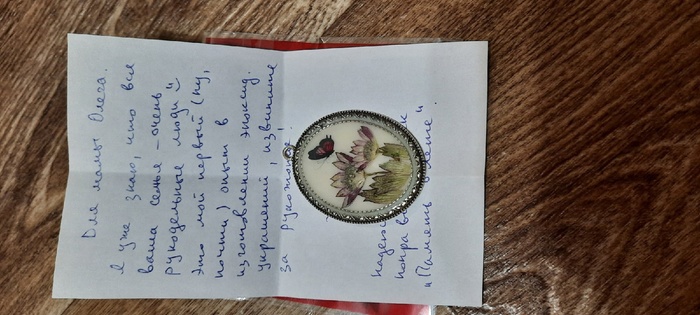 Для мамы Олега.
Я уже знаю, что вся
ваша семья – очень
рукодельные люди и
это мой первый (ну,
почти) опыт в
изготовлении эпоксид.
украшений, извините
за рукожопие.
надеюс
понрав
"Память о лете"